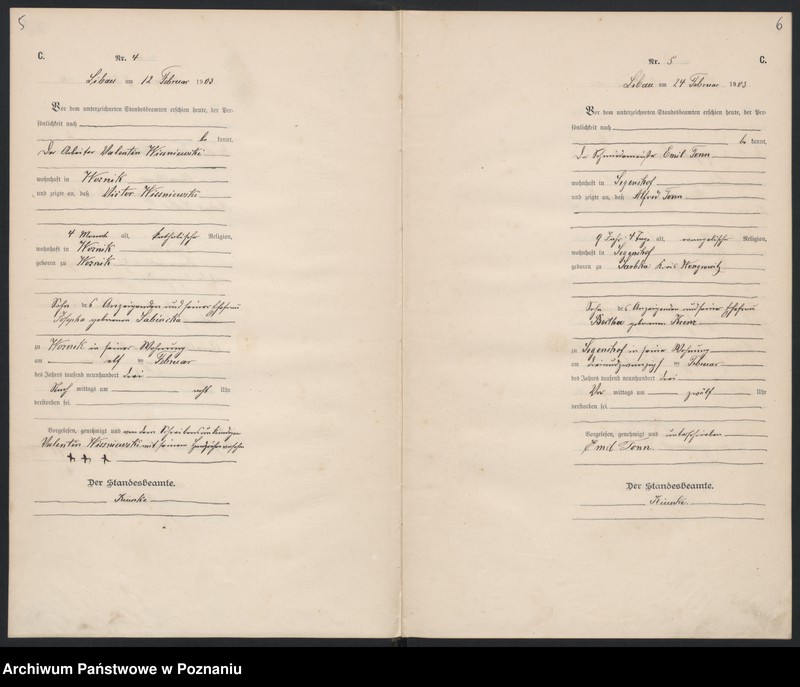 5
C.
Nr. 4
Libau am 12 Februar 1903
Vor dem unterzeichneten Standesbeamten erschien heute, der Per-
sönlichkeit nach
be kannt,
Der Arbeiter Valentin Wisniewski
wohnhaft in Woznik
und zeigte an, daß Victor Wisniewski
4 Monate alt, katholischer Religion,
wohnhaft in Woznik
geboren zu Woznik
Sohn des Anzeigenden und seiner Ehefrau
Josepha geborenen
zu Woznik in seiner Wohnung
am elf ten Februar
des Jahres tausend neunhundert drei
Nach mittags um acht Uhr
verstorben sei.
Vorgelesen, genehmigt und von dem Schreibensunkundigen
Valentin Wisniewski mit seinem Handzeichen versehen
+ + +
Der Standesbeamte.
6
Nr. 5
C.
Libau am 24 Februar 1903
Vor dem unterzeichneten Standesbeamten erschien heute, der Per-
sönlichkeit nach
be kannt,
Der Schmiedemeister Emil Tonn
wohnhaft in Jegenshof
und zeigte an, daß Alfred Tonn
9 Jahr 4 Tage alt, evangelischer Religion,
wohnhaft in Jegenshof
geboren zu Sarbka Kreis Wongrowitz
Sohn des Anzeigenden und seiner Ehefrau
Bertha geborenen
zu Jegenshof in seiner Wohnung
am dreiundzwanzigsten Februar
des Jahres tausend neunhundert drei
Vor mittags um zwölf Uhr
verstorben sei.
Vorgelesen, genehmigt und unterschrieben
Emil Tonn
Der Standesbeamte.
Archiwum Państwowe w Poznaniu